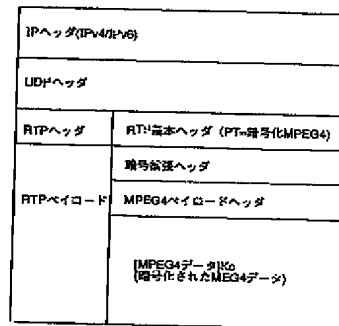 IPヘッダ(IPv4/IPv6)
UDPヘッダ
RTPヘッダ
RTP基本ヘッダ (PT=暗号化MPEG4)
暗号拡張ヘッダ
RTPペイロード
MPEG4ペイロードヘッダ
[MPEG4データ]Kc
(暗号化されたMEG4データ)